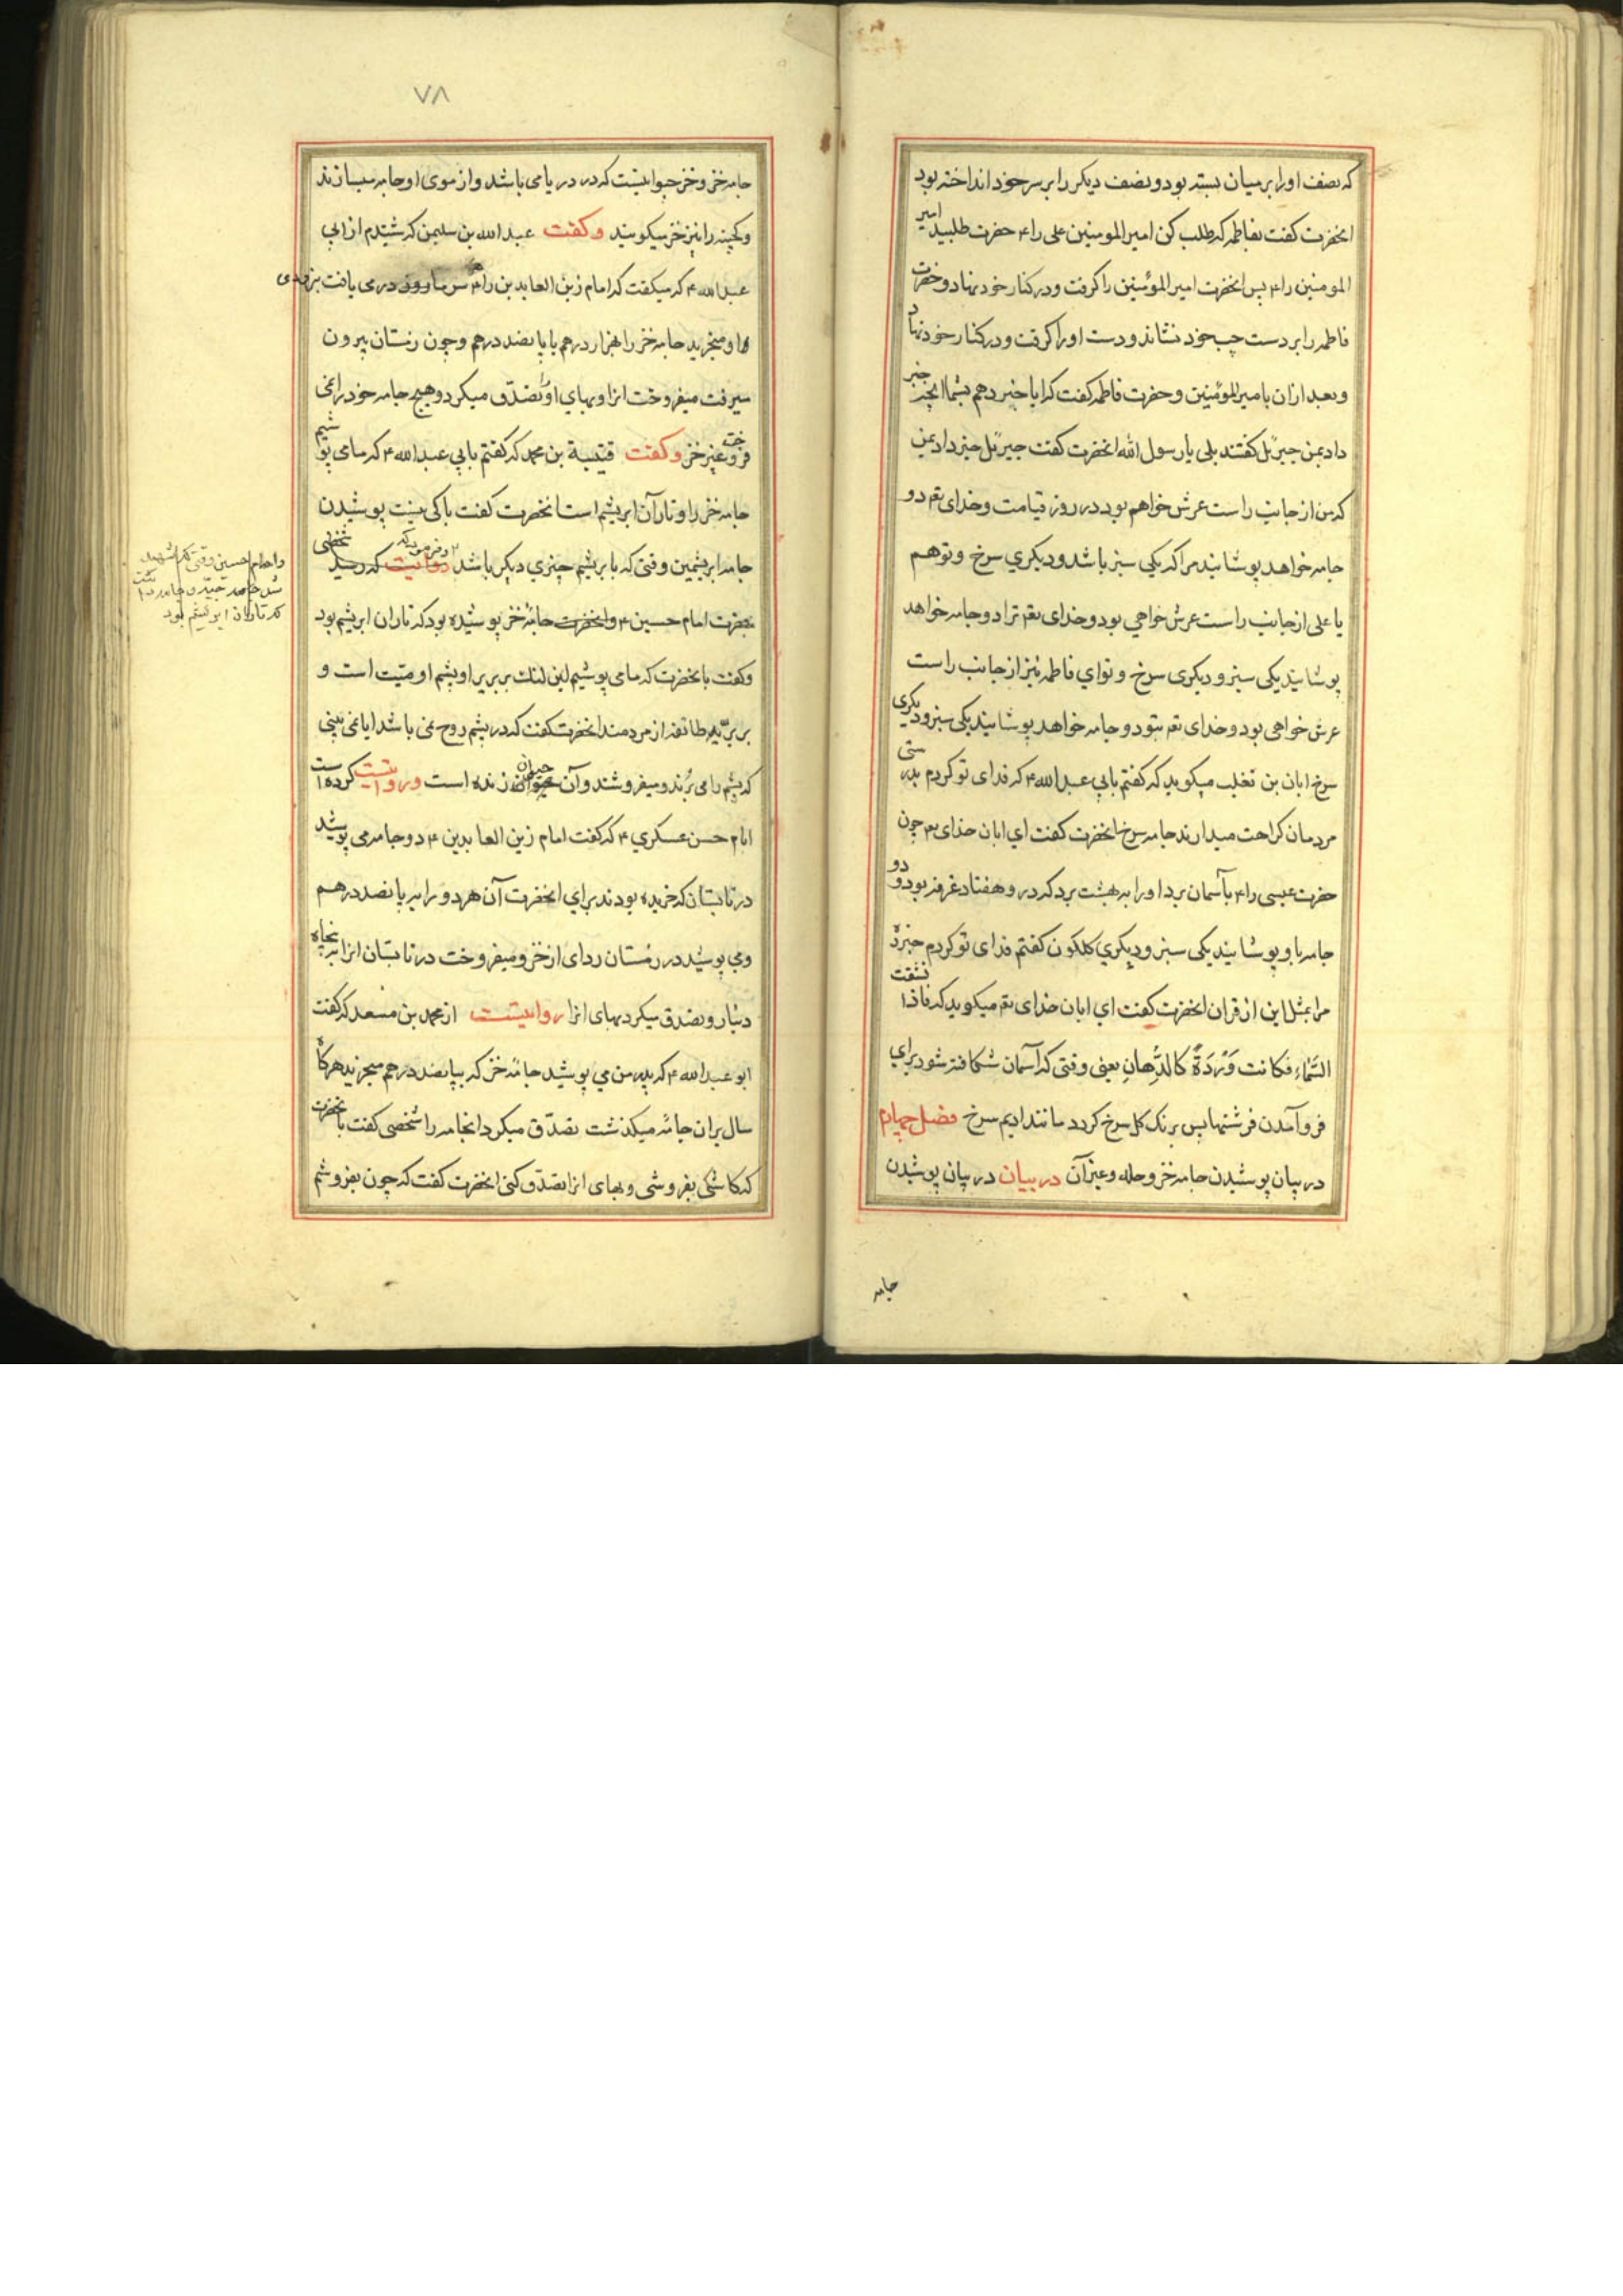 که نصف او را بر میان بسته بود و نصف دیکر را بر سر خود انداخته بود
انحضرت کفت بفاطمه که طلب کن امیر المومنین علی را ۴ حضرت طلبید امیر
المومنین را ۴ پس انحضرت امیر المؤمنین را کرفت و در کنار خود نهاد و حضرت
فاطمه را بر دست چپ خود نشاند و دست او را کرفت و در کنار خود نهاد
و بعد ازان با میر المؤمنین و حضرت فاطمه کفت که ایا خبر دهم بشما انچه خبر
داد بمن جبرئل کفتند بلی یا رسول الله انحضرت کفت جبرئل خبر داد بمن
که من از جانب راست عرش خواهم بود در روز قیامت و خدای تعم دو
جامه خواهد پوشانید مرا که یکی سبز باشد و دیکري سرخ و تو هم
یا علی از جانب راست عرش خواهي بود و خدای تعم ترا دو جامه خواهد
پوشانید یکی سبز و دیکری سرخ و تو اي فاطمه نیز از جانب راست
عرش خواهی بود و خدای تعم بتو دو جامه خواهد پوشانید یکی سبز و دیکری
سرخ ابان بن تغلب میکوید که کفتم بابي عبد الله ۴ که فدای تو کردم بدرستی
مردمان کراهت میدارند جامه سرخ انحضرت کفت اي ابان خدای تعم چون
حضرت عیسی را ۴ بآسمان برد او را به بهشت برد که در و هفتاد غرفه بود و دو
جامه باو پوشانید یکی سبز و دیکري کلکون کفتم فدای تو کردم خبر ده
مرا بمثل این از قران انحضرت کفت اي ابان خدای تعم میکوید که فاذا انشقت
السَّمَاءِ فکانت وَرْدَةً کالدِّهانِ یعنی وقتی که آسمان شکافته شود براي
فرو آمدن فرشتها پس برنک کل سرخ کردد مانند ادیم سرخ فصل چهارم
در بیان پوشیدن جامه خز و حله و غیر آن در بیان در بیان پوشیدن
جامه
۷۸
جامه خز و خز حیوانیست که در دریا می باشد و از موی او جامه میسازند
را نیز خز میکویند و کفت عبد الله بن سلیمن که شنیدم از ابي
عبد الله ۴ که میکفت که امام زین العابدین را ۴ سرما در می یافت بزودی
او میخرید جامه خز را بهزار درهم یا پانصد درهم و چون زمستان بیرون
میرفت میفروخت انرا و بهاي او تصدّق میکرد و هیچ جامه خود را نمی
فروخت غیر خز و کفت قتیبة بن محمد که کفتم بابي عبد الله ۴ که ما می پوشیم
جامه خز را و تار آن ابریشم است انحضرت کفت باکی نیست پوشیدن
جامه ابریشمین وقتی که با بریشم چیزی دیکر باشد و فرمود که روایت که رسید شخصی
بحضرت امام حسین ۴ و انحضرت جامهٔ خز پوشیده بود که تار ان ابریشم بود
و کفت بانحضرت که ما می پوشیم این بربر یرا و پشم او میّت است و
طائفه از مردمند انحضرت کفت که در پشم روح نمی باشد ایا نمی بینی
که پشم را می برُند و میفروشند و آن حیوان حیوان زنده است و روایت کرده است
امام حسن عسکري ۴ که کفت امام زین العابدین ۴ دو جامه می پوشید
در تابستان که خریده بودند براي انحضرت آن هر دو را به پانصد درهم
و می پوشید در زمستان ردای از خز و میفروخت در تابستان انرا به پنجاه
دینار و تصدق میکرد بهای انرا روایتست از محمد بن مسعد که کفت
ابو عبد الله ۴ که پدر من مي پوشید جامهٔ خز که بپانصد درهم میخرید هر کاه
سال بران جامه میکذشت تصدّق میکرد انجامه را شخصی کفت بانحضرت
که کاشکی بفروشی و بهای انرا تصدّق کنی انحضرت کفت که چون بفروشم
و امام حسین وقتی که شهید
شد جامه
که تار ان ابریشم بود